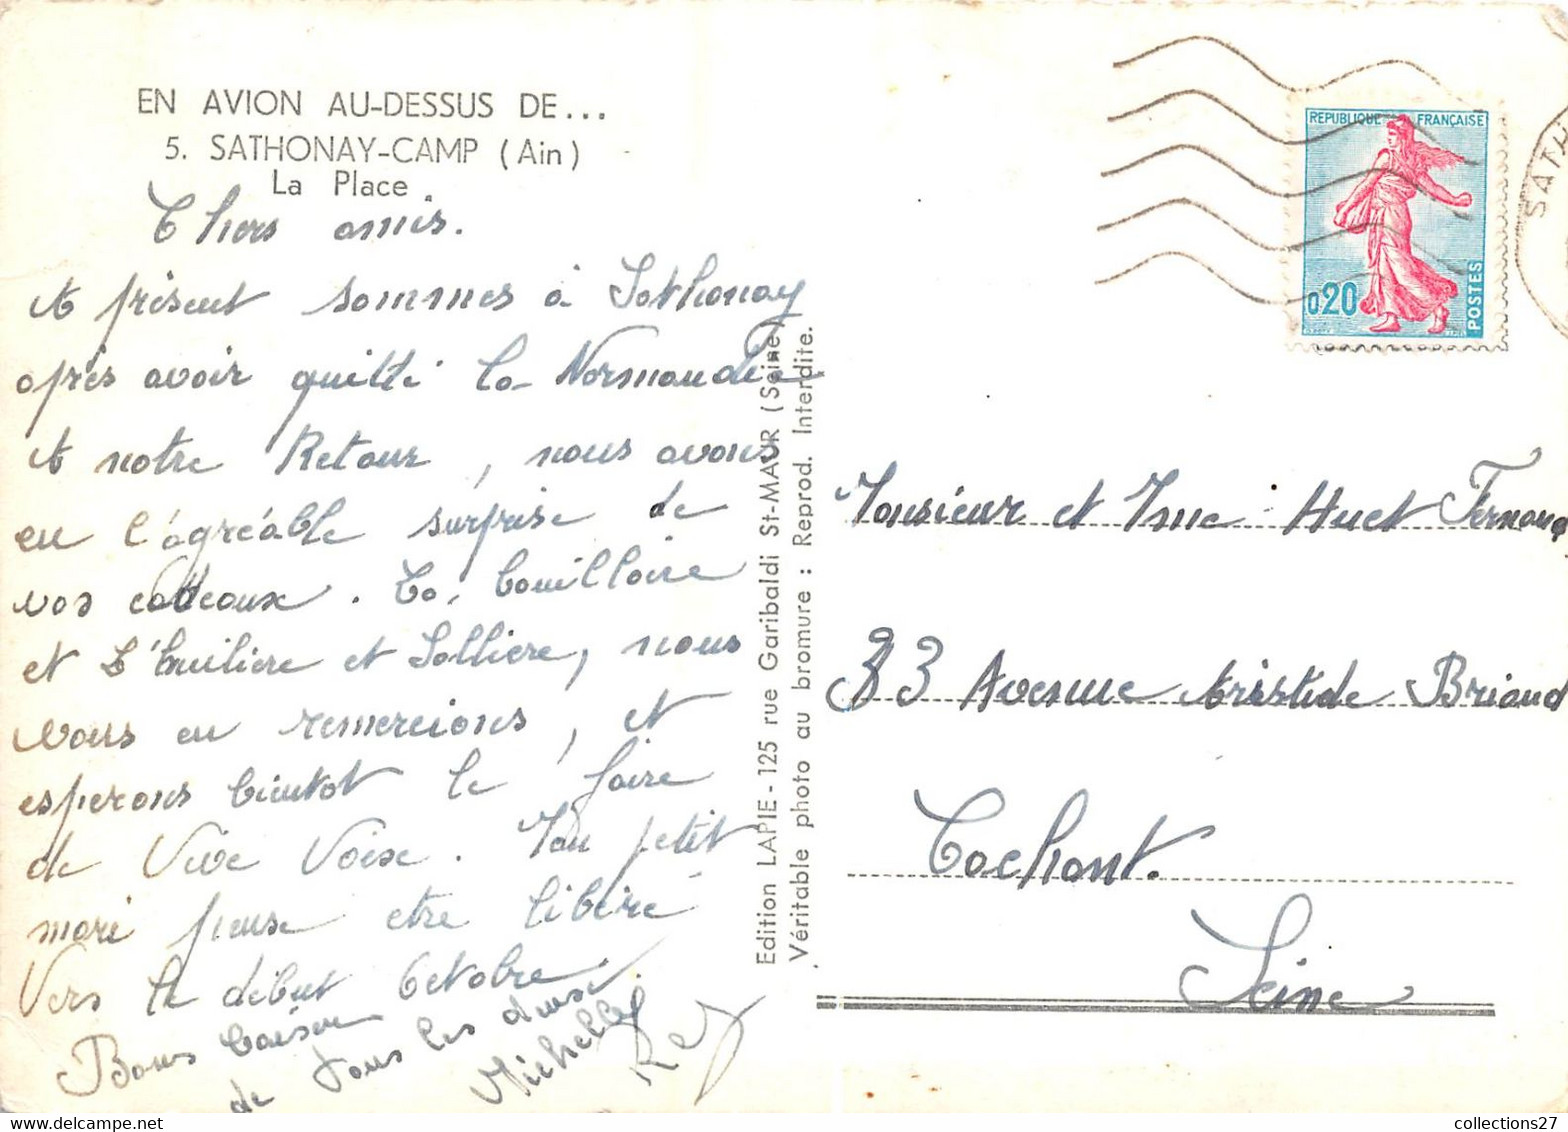 EN AVION AU-DESSUS DE...
5. SATHONAY-CAMP (Ain)
La Place
Chers amis.
A présent sommes à Sathonay
après avoir quitté la Normandie
A notre Retour, nous avons
eu l'agréable surprise de
vos cadeaux. La, Bouilloire
et L'huiliere et Salliere, nous
vous en remercions, et
esperons bientot le faire
de Vive Voix. Mon petit
mari pense etre libéré
Vers le début Octobre.
Bons baisers
de tous les deux.
Michelle
Edition LAPIE - 125 rue Garibaldi St-MAUR (Seine)
Véritable photo au bromure : Reprod. Interdite.
REPUBLIQUE FRANÇAISE
0,20
POSTES
SATH
Monsieur et Mme Huet Fernand
83 Avenue Aristide Briand
Cachant.
Seine
collections27